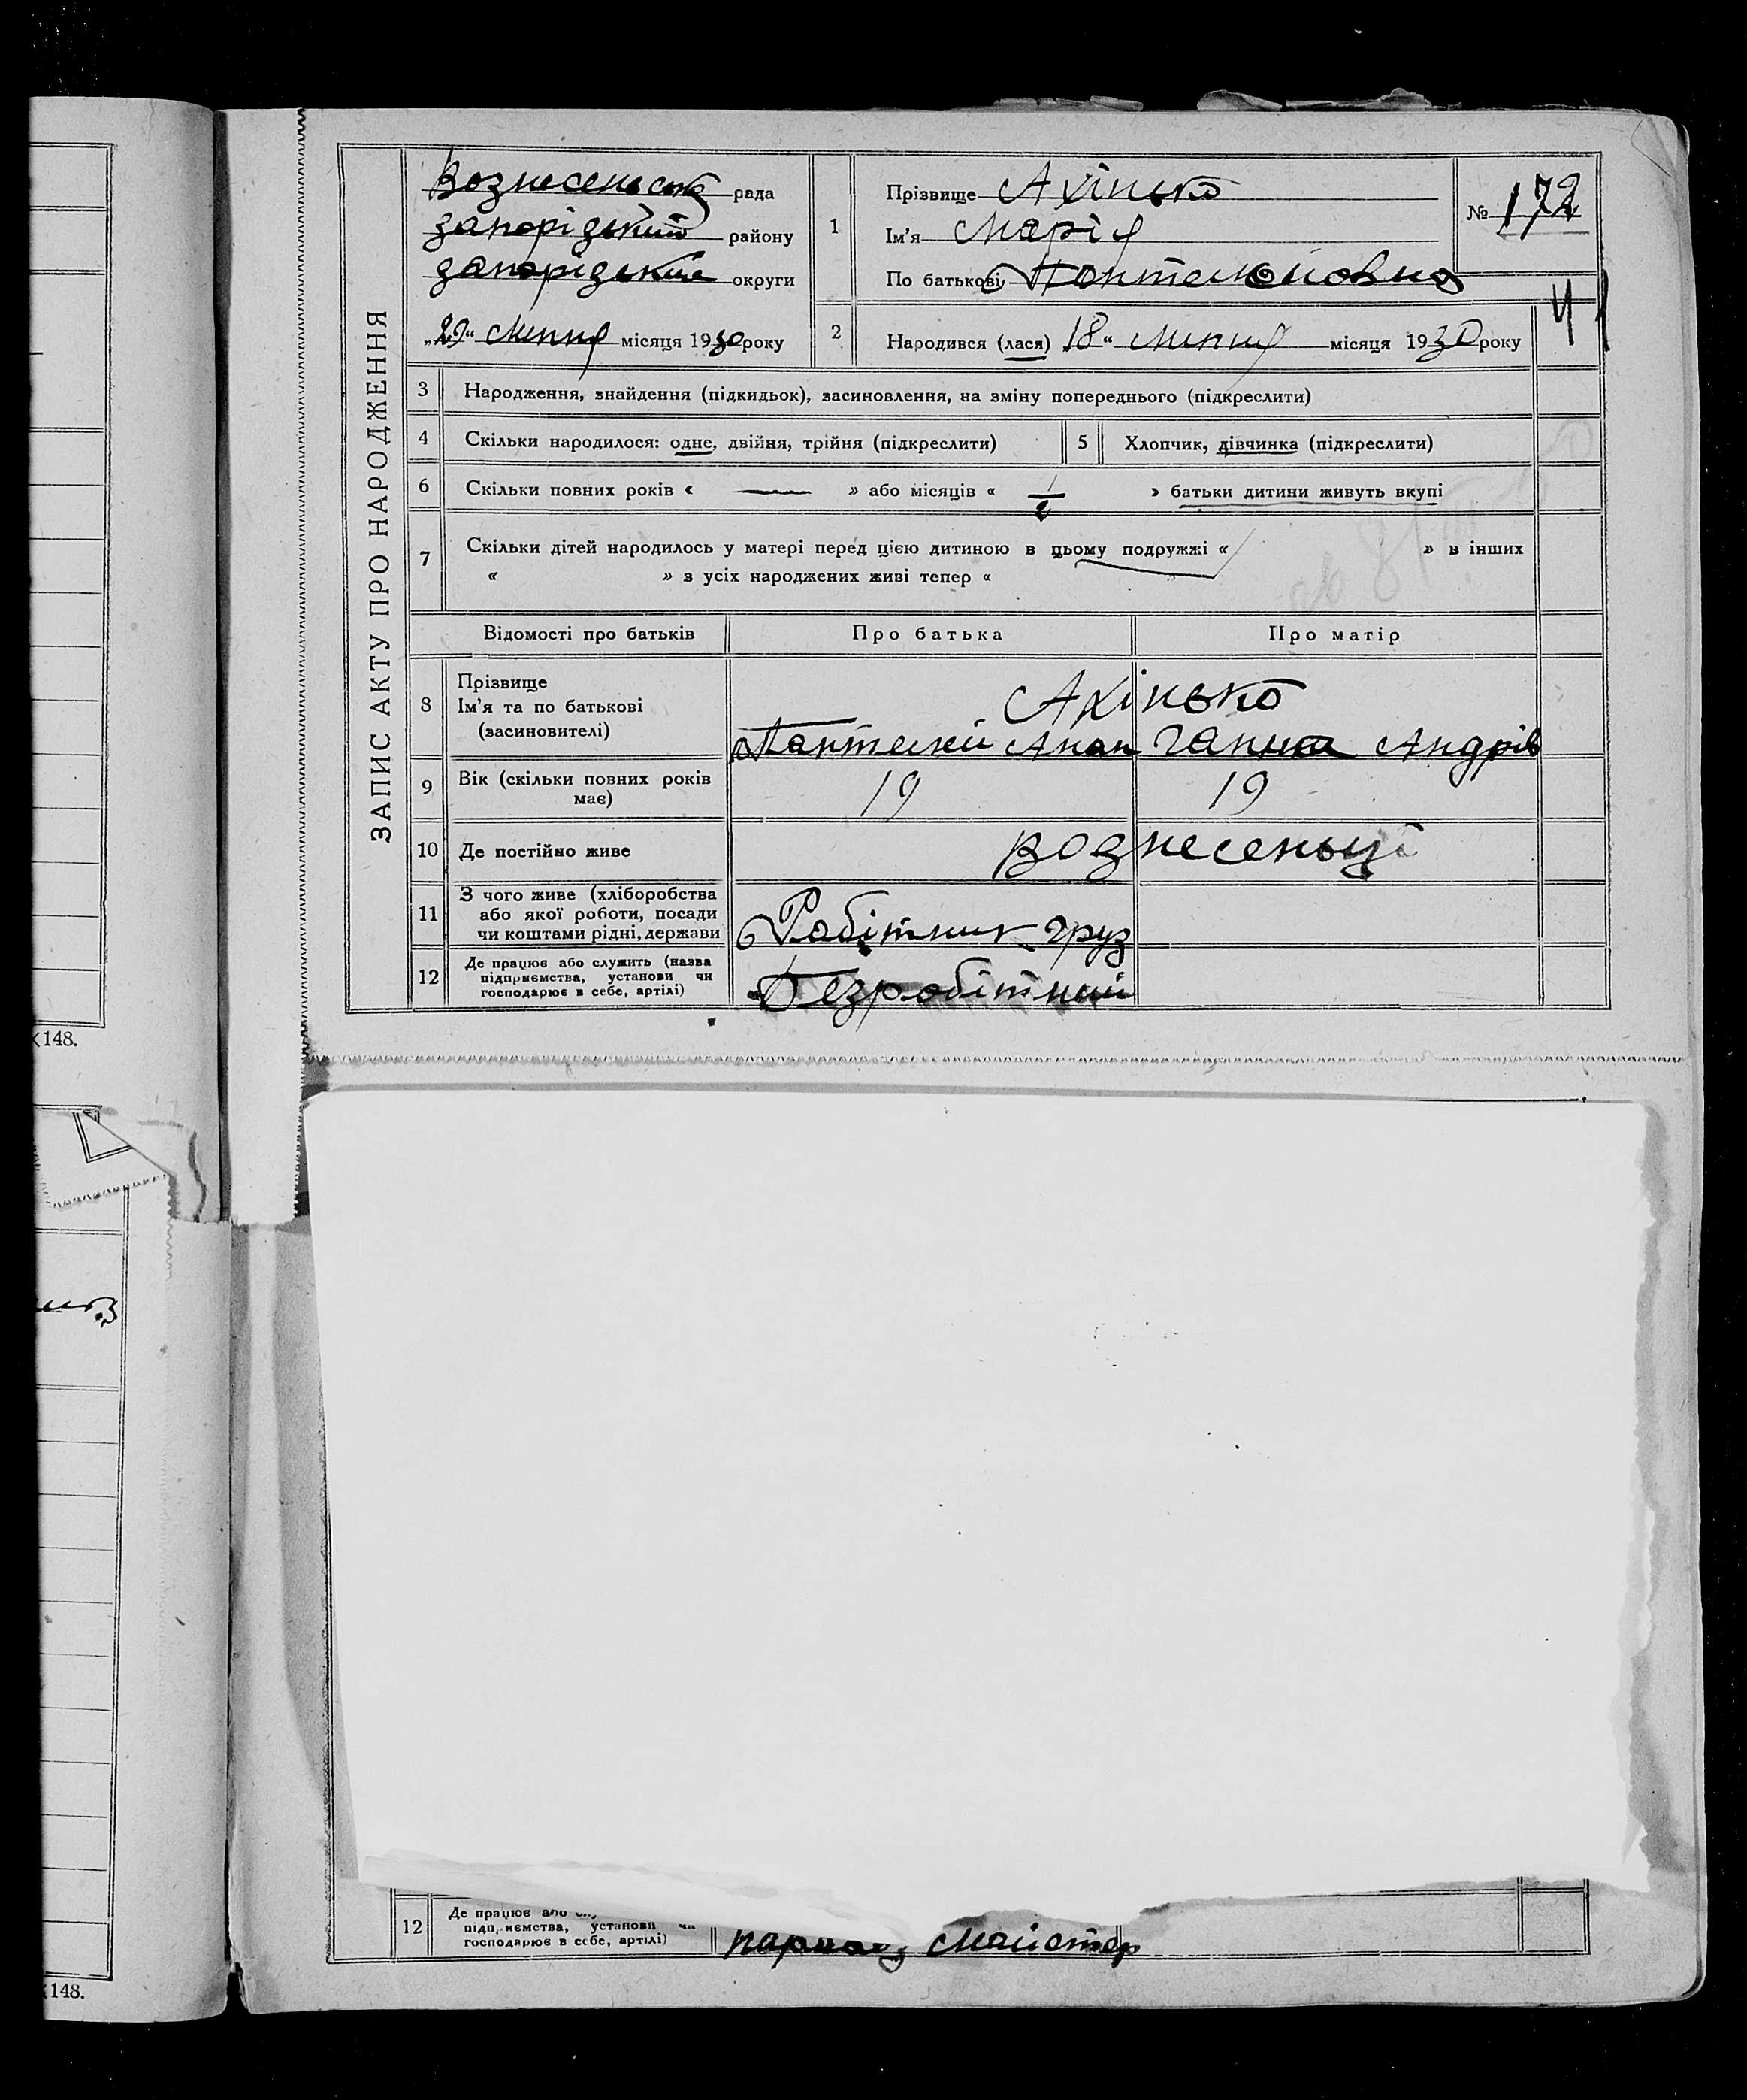 ЗАПИС АКТУ ПРО НАРОДЖЕННЯ
Вознесенська рада
запорізький району
запорізький округи
„29“ липня місяця 1930 року
1
Прізвище Ахінько
Ім'я Марія
По батькові Пантелеоновна
№ 172
2
Народився (лася) 18“ липня місяця 1930 року
3 Народження, знайдення (підкидьок), засиновлення, на зміну попереднього (підкреслити)
4 Скільки народилося: одне, двійня, трійня (підкреслити)
5 Хлопчик, дівчинка (підкреслити)
6 Скільки повних років « — » або місяців « 1/2 » батьки дитини живуть вкупі
7 Скільки дітей народилось у матері перед цією дитиною в цьому подружжі « » в інших
« » з усіх народжених живі тепер «
Відомості про батьків Про батька Про матір
8 Прізвище
Ім'я та по батькові
(засновителі)
Ахінько
Пантелей Апан Ганна Андрів
9 Вік (скільки повних років
має)
19 19
10 Де постійно живе Вознесенці
11 З чого живе (хліборобства
або якої роботи, посади
чи коштами рідні, держави
Робітник груз
12 Де працює або служить (назва
підприємства, установи чи
господарює в себе, артілі)
Безробітний
148.
12 Де працює або
підприємства, установи чи
господарює в себе, артілі)
майстер
148.